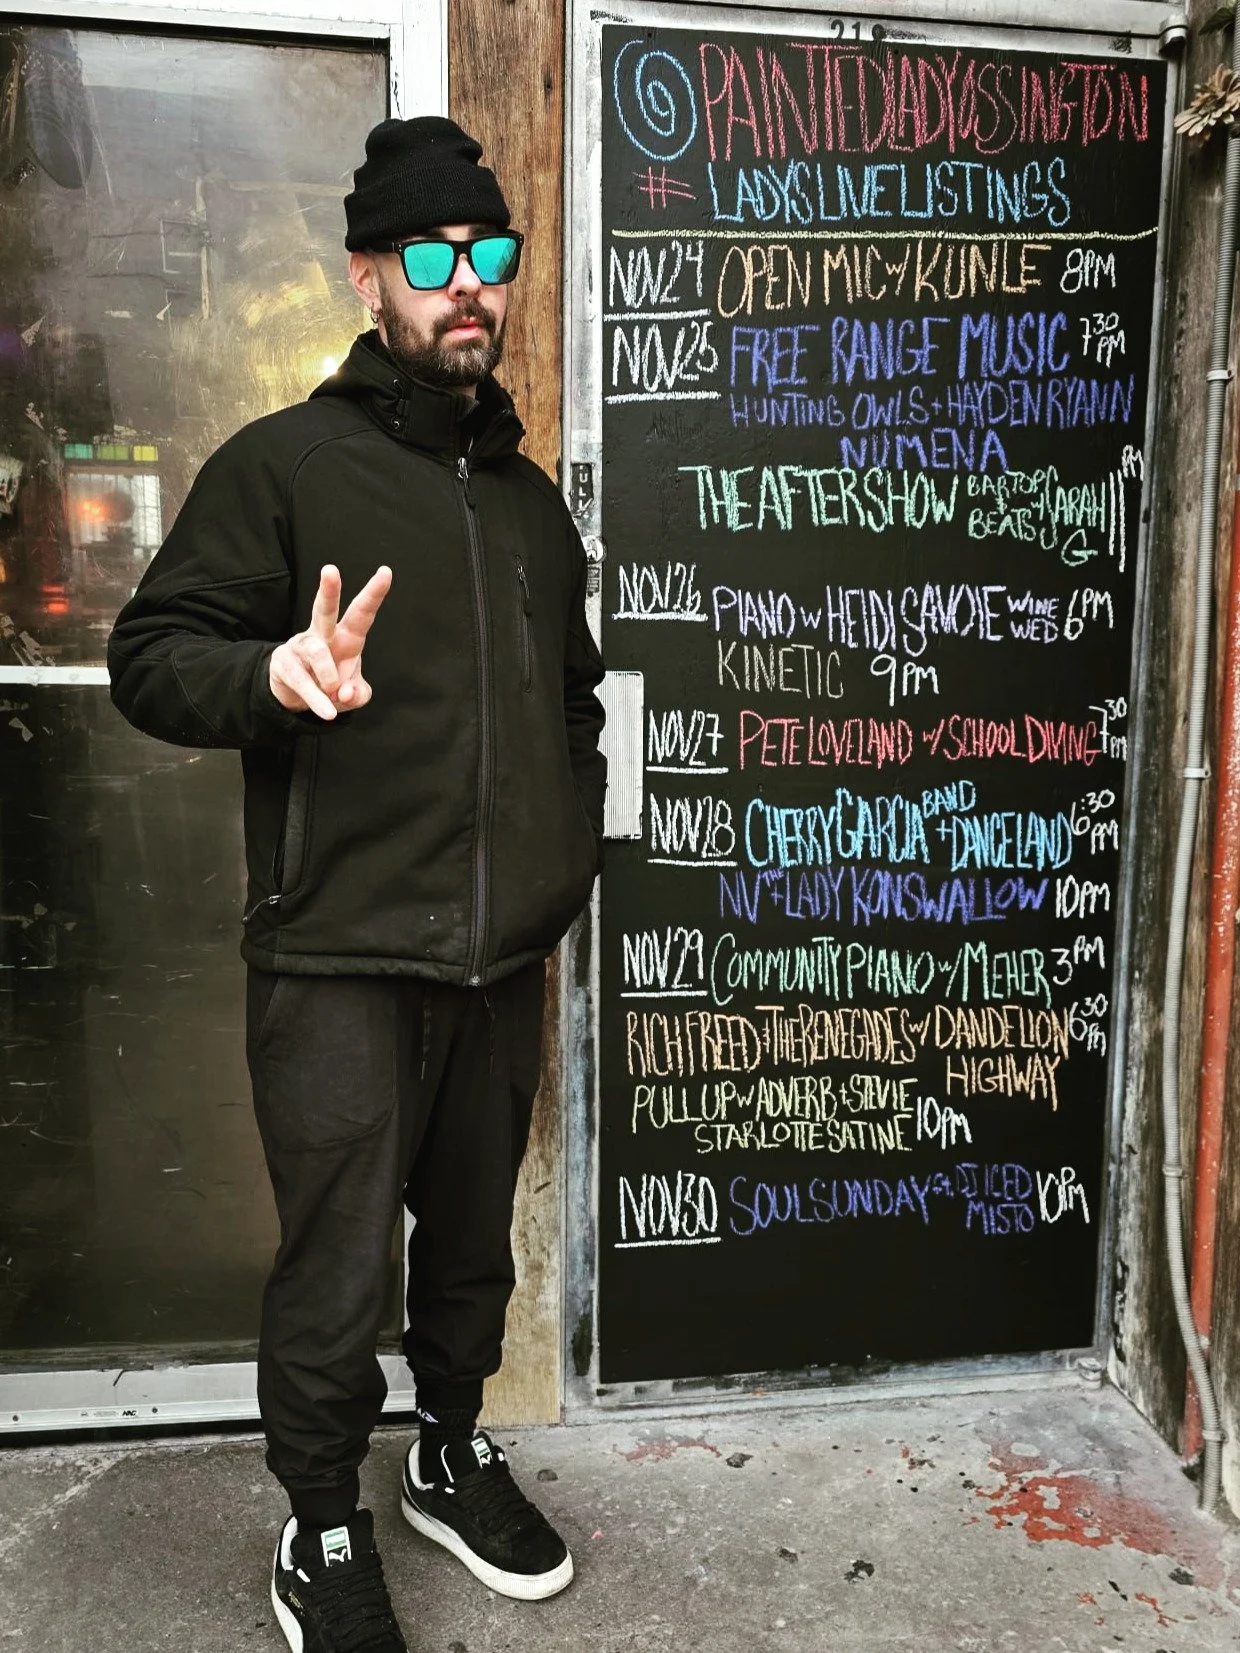 218
@PAINTEDLADYOSSINGTON
# LADYSLIVELISTINGS
NOV24 OPEN MIC w/ KUNLE 8PM
NOV25 FREE RANGE MUSIC 730PM
HUNTING OWLS + HAYDEN RYANN
NUMENA
THE AFTERSHOW BARTOP & BEATS w/ SARAH G 11PM
NOV26 PIANO w HEIDI SAVOIE WINE WED 6PM
KINETIC 9PM
NOV27 PETE LOVELAND w/ SCHOOL DIVING 730PM
NOV28 CHERRY GARCIA BAND + DANCELAND 6:30PM
NV THE + LADY KONSWALLOW 10PM
NOV29 COMMUNITY PIANO w/ MEHER 3PM
RICH FREED & THE RENEGADES w/ DANDELION HIGHWAY 630PM
PULL UP w ADVERB + STEVIE
STARLOTTE SATINE 10PM
NOV30 SOUL SUNDAY ft. DJ ICED MISTO 10PM